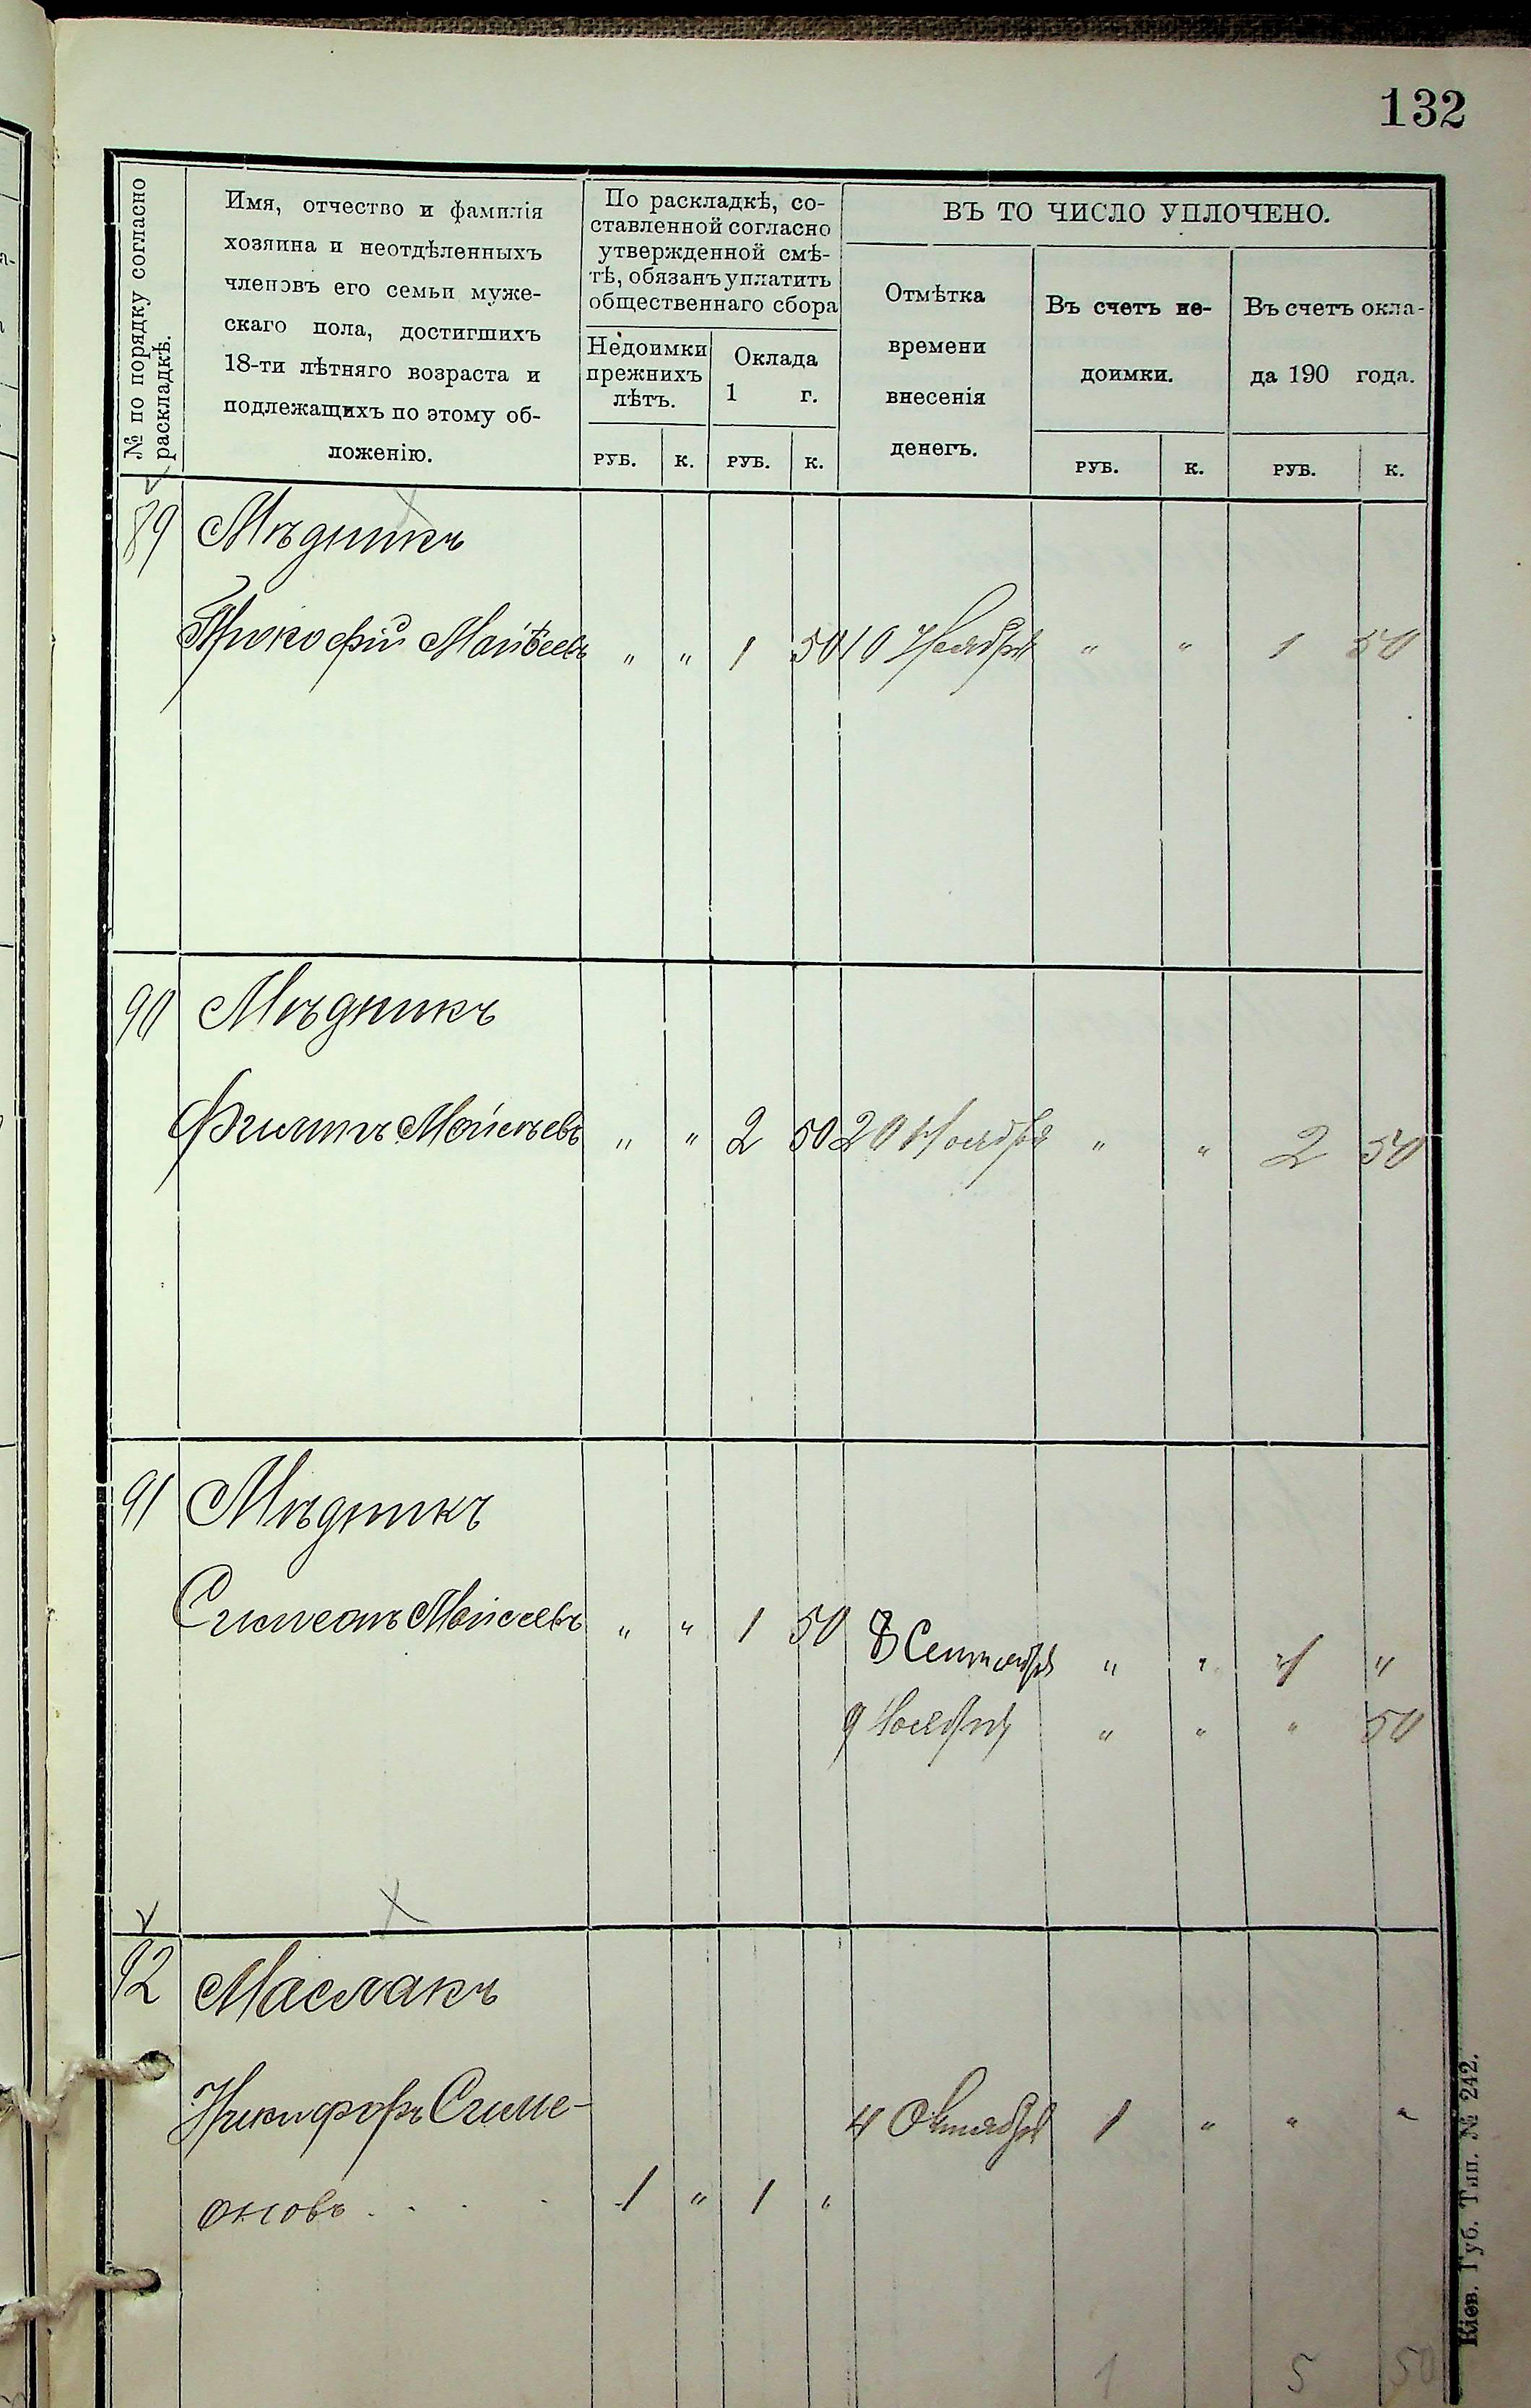 132
№ по порядку согласно
раскладкѣ.
Имя, отчество и фамилія
хозяина и неотдѣленныхъ
членовъ его семьи муже-
скаго пола, достигшихъ
18-ти лѣтняго возраста и
подлежащихъ по этому об-
ложенію.
По раскладкѣ, со-
ставленной согласно
утвержденной смѣ-
тѣ, обязанъ уплатить
общественнаго сбора
Недоимки
прежнихъ
лѣтъ.
Оклада
1 г.
РУБ. К. РУБ. К.
ВЪ ТО ЧИСЛО УПЛОЧЕНО.
Отмѣтка
времени
внесенія
денегъ.
Въ счетъ не-
доимки.
Въ счетъ окла-
да 190 года.
РУБ. К. РУБ. К.
89 Мѣдникъ
Прокофій Моисеевъ " " 1 50 10 Ноября " " 1 50
90 Мѣдникъ
Филипъ Моисѣевъ " " 2 50 20 Ноября " " 2 50
91 Мѣдникъ
Симеонъ Моисеевъ " " 1 50 8 Сентября " " 1 "
9 Ноября " " " 50
92 Маслакъ
Никифоръ Симе- 4 Октября 1 " " "
оновъ . . . 1 " 1 "
1 5 50
Кіев. Губ. Тип. № 242.